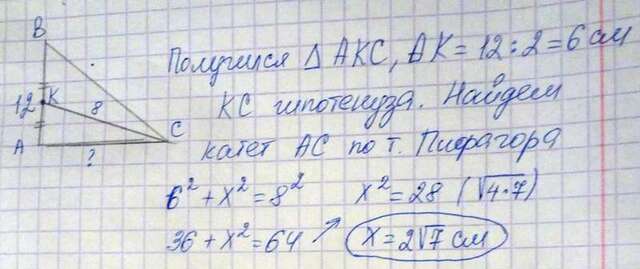 B
12
K
8
C
A
?
Получился △ AKC, AK = 12 : 2 = 6 см
KC гипотенуза. Найдем
катет AC по т. Пифагора
6² + x² = 8² x² = 28 (√4·7)
36 + x² = 64 ↗ x = 2√7 см